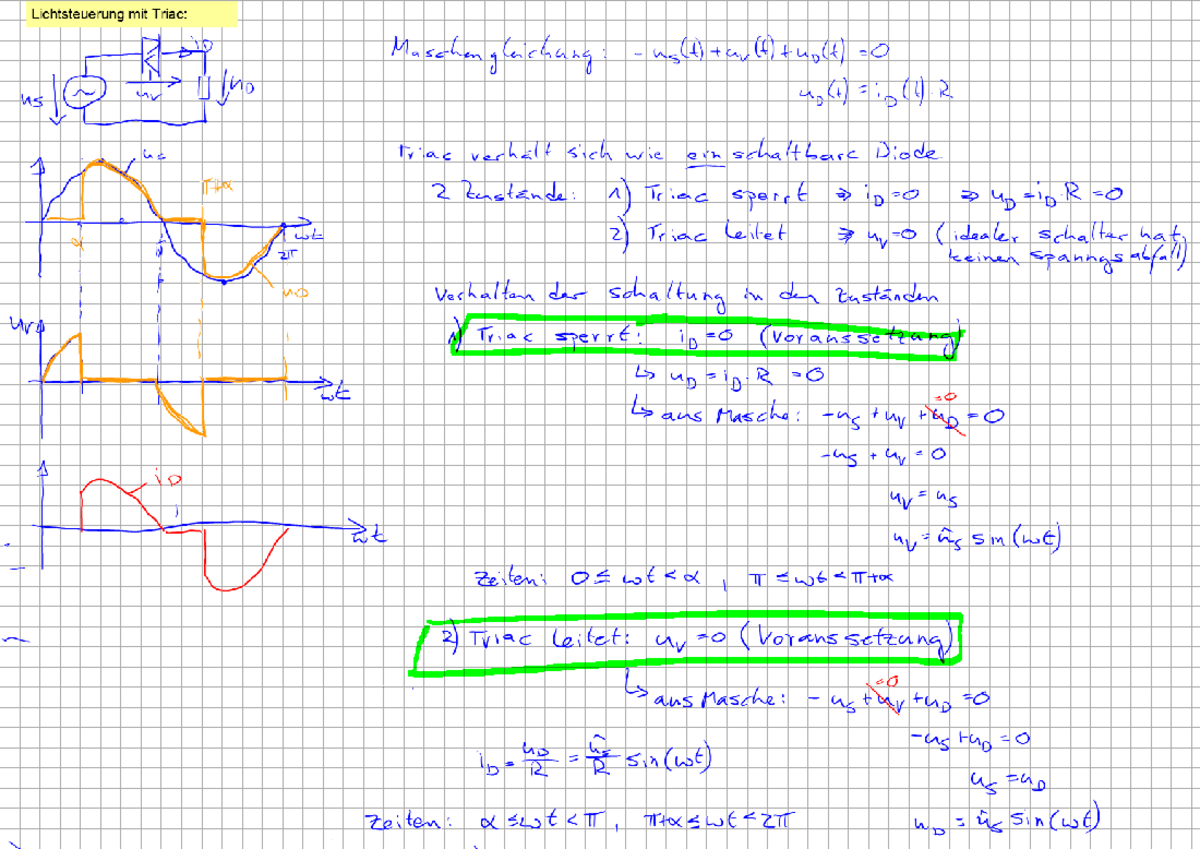 Lichtsteuerung mit Triac:
i_D
u_S
u_V
u_D
Maschengleichung: -u_S(t)+u_V(t)+u_D(t) =0
u_D(t) = i_D(t)·R
u_S
π+α
α
π
ωt
2π
u_D
Triac verhält sich wie einschaltbare Diode
2 Zustände: 1) Triac sperrt ⇒ i_D=0 ⇒ u_D=i_D·R=0
2) Triac leitet ⇒ u_V=0 (idealer Schalter hat
keinen Spanngsabfall)
Verhalten der Schaltung in den Zuständen
u_V
ωt
1) Triac sperrt: i_D=0 (Voraussetzung)
↳ u_D = i_D·R = 0
↳ aus Masche: -u_S + u_V + u_D = 0
=0
-u_S + u_V = 0
u_V = u_S
u_V = û_S sin(ωt)
i_D
ωt
Zeiten: 0 ≤ ωt < α , π ≤ ωt < π+α
2) Triac leitet: u_V=0 (Voraussetzung)
↳ aus Masche: -u_S + u_V + u_D = 0
=0
-u_S + u_D = 0
u_S = u_D
i_D = u_D/R = û_S/R sin(ωt)
u_D = û_S sin(ωt)
Zeiten: α ≤ ωt < π , π+α ≤ ωt < 2π